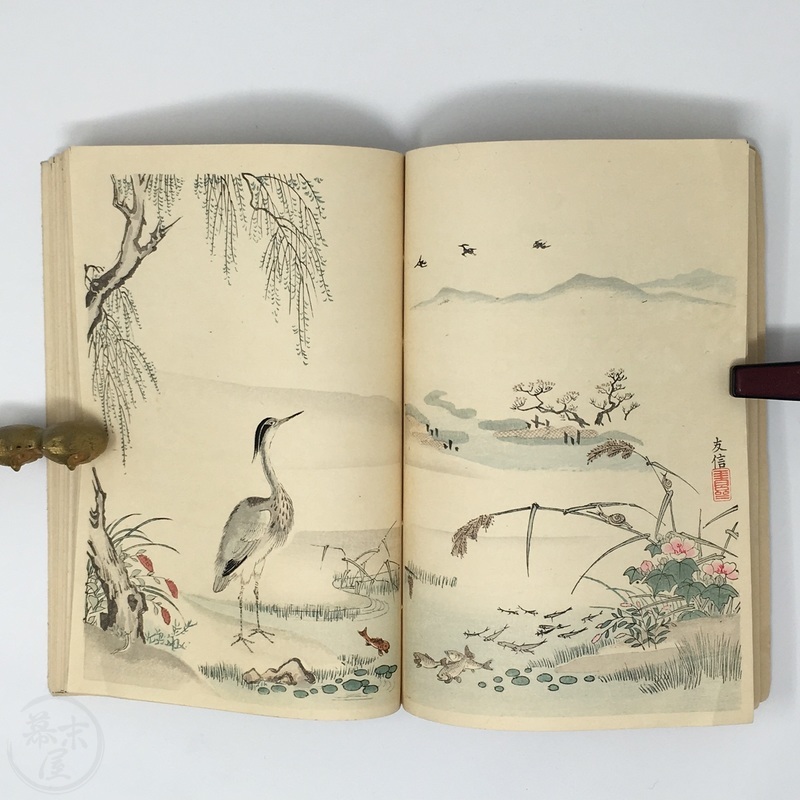 友信
幕末屋